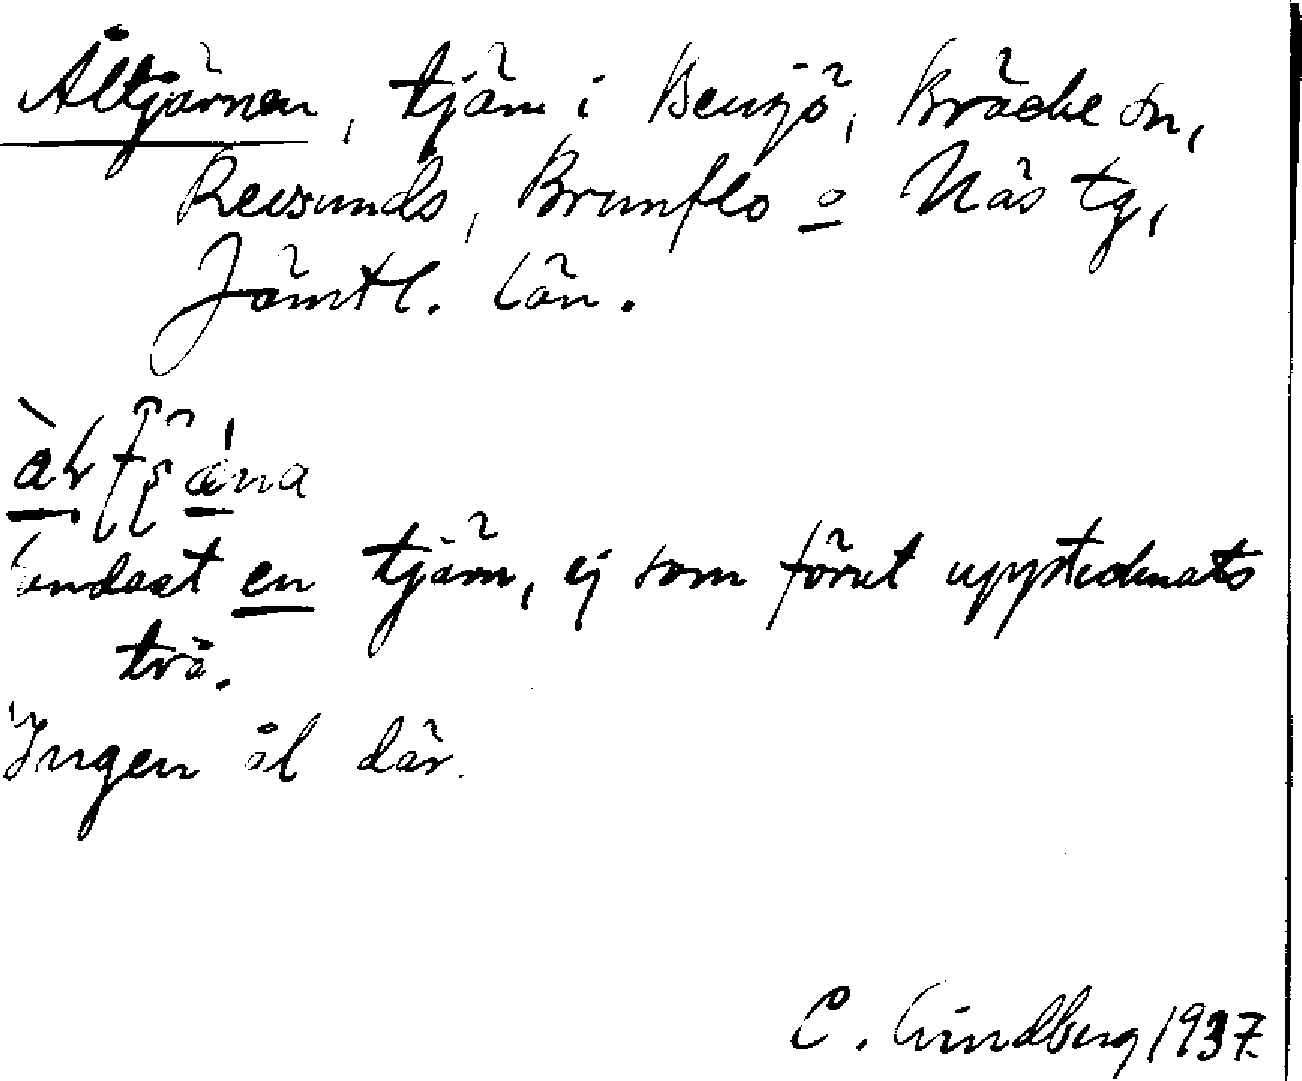 Åltjärnen, tjärn i Bensjö, Bräcke sn,
Revsunds, Brunflo o Näs tg,
Jämtl. län.
endast en tjärn, ej som förut upptecknats
två.
Ingen ål där.
C. Lindberg 1937.